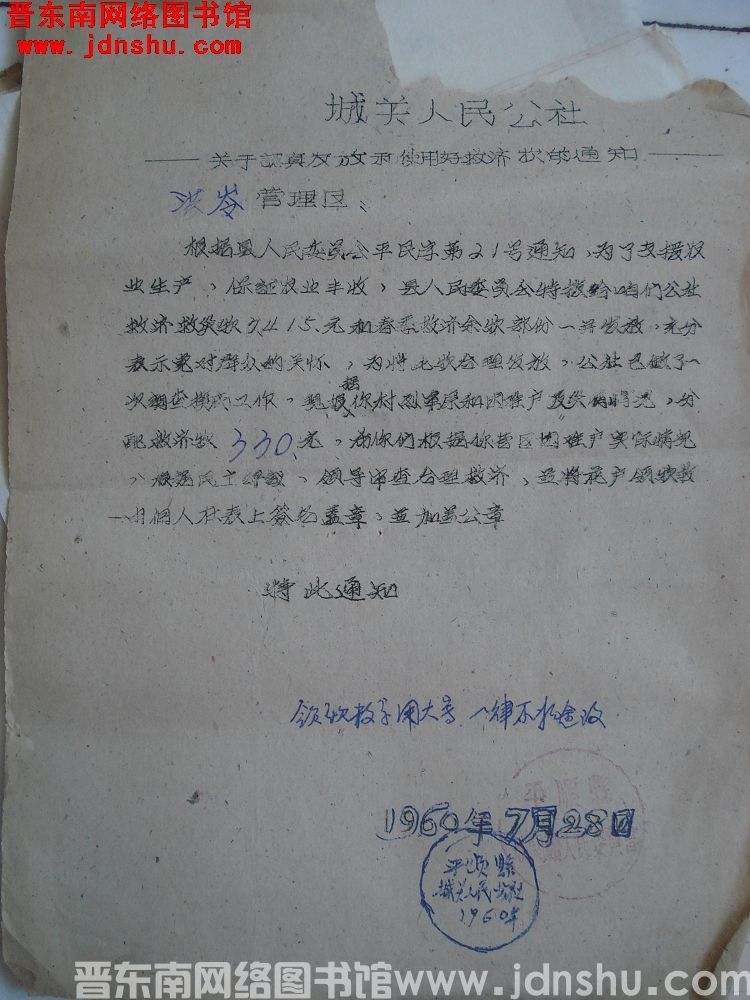 晋东南网络图书馆
www.jdnshu.com
城关人民公社
关于認真发放和使用好救济款的通知
管理区、
根据县人民委员会平民字第21号通知、为了支援农
业生产、保証农业丰收、县人民委员会特拨给咱们公社
救济款 元和春季救济余款部份一并发放、充分
表示党对群众的关怀、为将此款合理发放、公社已做了一
次調查摸底工作、現根据你村烈軍屬和困难户 情况、分
配救济款330.元、 你们根据你管区困难户实际情况
、 民主評議、领导审查合理救济、並将花户领款数
由個人在表上签名蓋章、並加盖公章
特此通知
领款数字用大写、一律不准塗改
1960年7月28日
平顺縣
城关人民公社
1960年
晋东南网络图书馆www.jdnshu.com